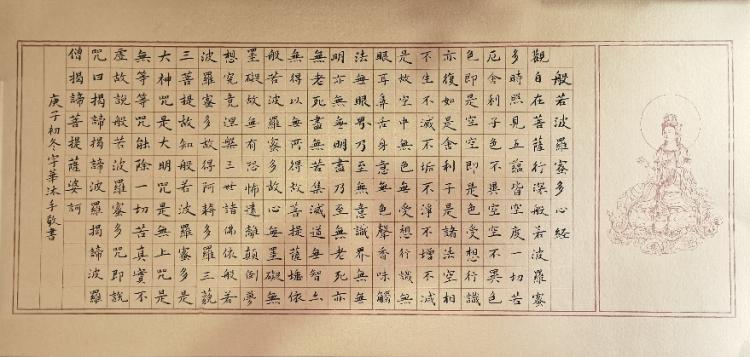 般若波羅蜜多心經
觀自在菩薩行深般若波羅蜜
多時照見五蘊皆空度一切苦
厄舍利子色不異空空不異色
色即是空空即是色受想行識
亦復如是舍利子是諸法空相
不生不滅不垢不淨不增不減
是故空中無色無受想行識無
眼耳鼻舌身意無色聲香味觸
法無眼界乃至無意識界無無
明亦無無明盡乃至無老死亦
無老死盡無苦集滅道無智亦
無得以無所得故菩提薩埵依
般若波羅蜜多故心無罣礙無
罣礙故無有恐怖遠離顛倒夢
想究竟涅槃三世諸佛依般若
波羅蜜多故得阿耨多羅三藐
三菩提故知般若波羅蜜多是
大神咒是大明咒是無上咒是
無等等咒能除一切苦真實不
虛故說般若波羅蜜多咒即說
咒曰揭諦揭諦波羅揭諦波羅
僧揭諦菩提薩婆訶
庚子初冬宇華沐手敬書